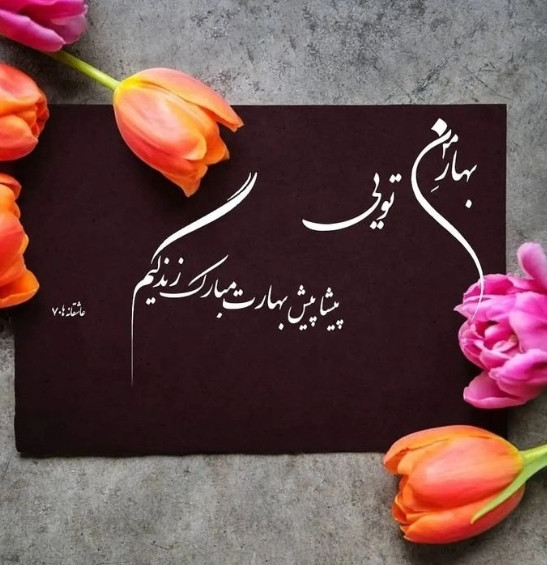 بهارِ من
تویی
پیشاپیش بهارت مبارک زندگیم
عاشقانه های ۷۰